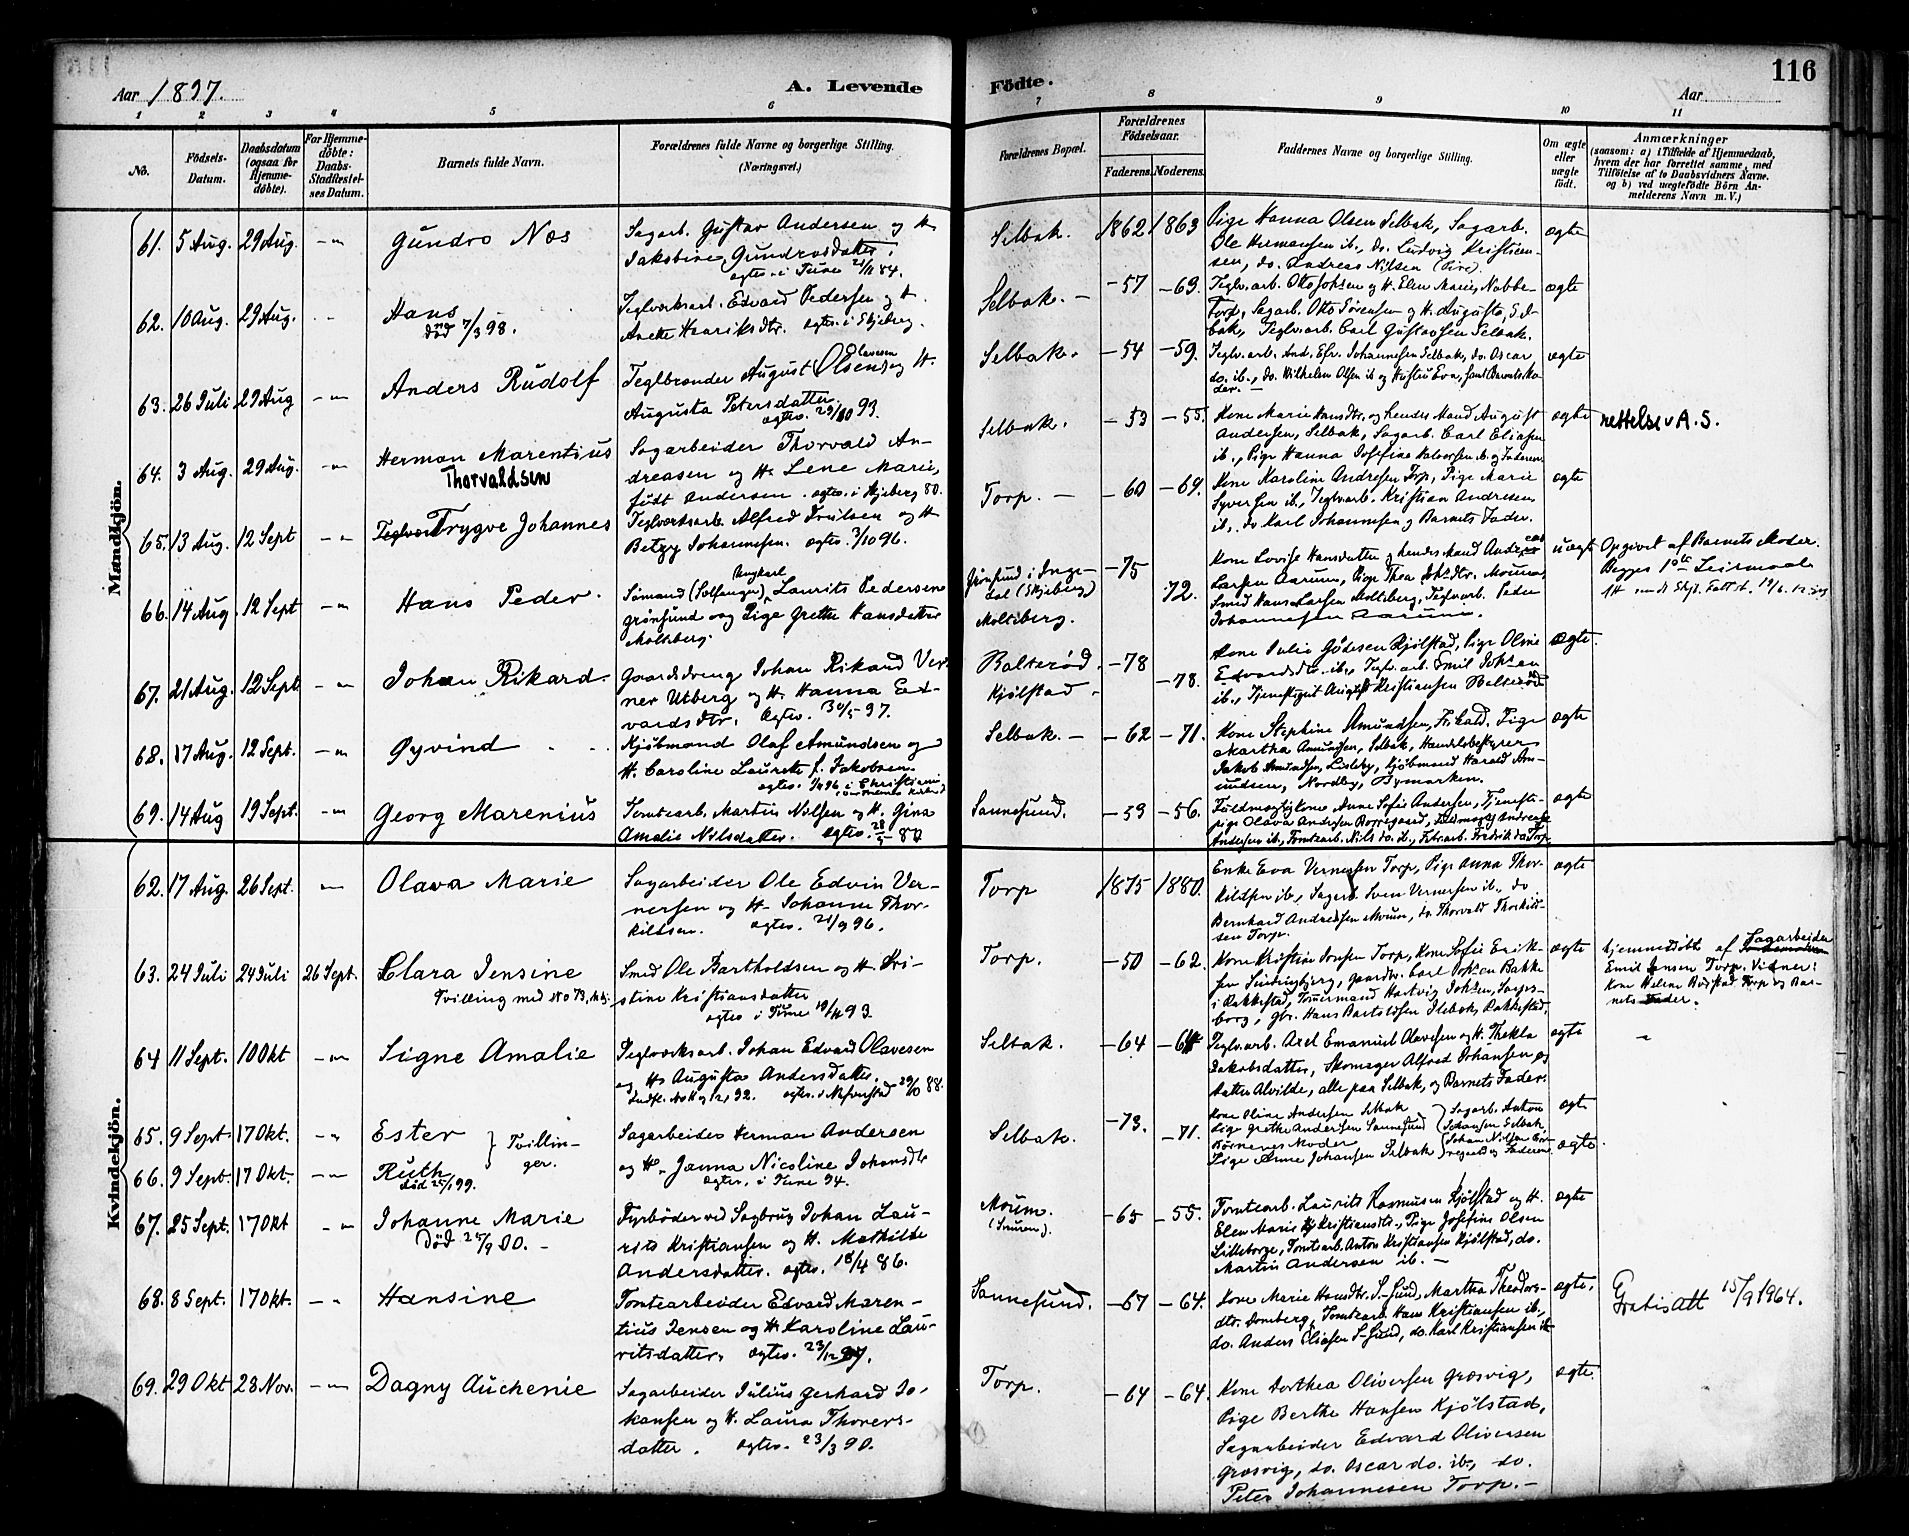 116
Aar 1897.
A. Levende
Födte.
Aar
1 2 3 4 5 6 7 8 9 10 11
No.
Födsels-Datum.
Daabsdatum (ogsaa for Hjemmedöbte).
For Hjemmedöbte: Daabs-Stadfæstelses Datum.
Barnets fulde Navn.
Forældrenes fulde Navne og borgerlige Stilling. (Næringsvei.)
Forældrenes Bopæl.
Forældrenes Födselsaar.
Faderens. Moderens.
Faddernes Navne og borgerlige Stilling.
Om ægte eller uægte födt.
Anmærkninger
(saasom: a) i Tilfælde af Hjemmedaab,
hvem der har forrettet samme, med
Tilföielse af to Daabsvidners Navne.
og b) ved uægtefödte Börn An-
melderens Navn m. V.)
Mandkjön.
61. 5 Aug. 29 Aug. Gundro Næs
Sagarb. Gustav Andersen og H.
Jakobine Gundrosdatter.
ægtev. i Tune 84.
Selbak. 1862 1863
Pige Hanna Olsen Selbak, Sagarb.
Ole Hermansen ib., do. Ludvig Kristian-
sen, do. Andreas Nilsen
ægte
62. 10 Aug. 29 Aug. Hans
död 7/3 98.
Teglverksarb. Edvard Pedersen og H.
Anette Henriksdtr. ægtev. i Skjeberg.
Selbak. - -57 -63.
Teglv.arb. Otto Johsen og H. Elen Marie, Nabbe-
Torp, Sagarb. Otto Sörensen og H. Augusta, Sel-
bak, Teglv.arb. Carl Gustavsen Selbak.
ægte
63. 26 Juli 29 Aug Anders Rudolf
Teglbrænder August Olsen Olavesen og H.
Augusta Petersdatter.
ægtev. 93.
Selbak. -54 -59.
Teglv.arb. And. Efr. Johannesen Selbak, do. Oscar
do. ib., do. Wilhelm Olsen ib og Hustru Eva, samt Barnets Mo-
der.
ægte
64. 3 Aug. 29 Aug. Herman Marentius
Thorvaldsen
Sagarbeider Thorvald An-
dreasen og H. Lene Marie,
födt Andersen. ægtev. i Skjeberg 80.
Selbak. -53 -55.
Kone Marie Hansdtr. og hendes Mand August
Andersen, Selbak, Sagarb. Carl Eliasen
ib., Pige Hanna Josefine Halvorsen ib. og Faderen.
ægte
rettelse v A. S.
65. 13 Aug. 12 Sept Trygve Johannes
Teglverksarb. Alfred Truilsen og H
Betzy Johannesen. ægtev. 3/10 96.
Torp. - -60 -69.
Kone Karoline Andresen Torp, Pige Marie
Syversen ib., Teglv.arb. Kristian Andresen
ib., do Karl Johannesen og Barnets Fader.
ægte
66. 14 Aug 12 Sept Hans Peder.
Sömand (Selfanger) Ungkarl Laurits Pedersen
Grönsund og Pige Grethe Hansdatter
Moltiberg.
Grönsund i Inge-
dal (Skjeberg)
Moltiberg.
-75 72.
Kone Lovise Hansdatter og hendes Mand Andreas
Larsen Aarum, Pige Thea Johsdtr. Moum,
Smed Hans Larsen Moltiberg, Teglv.arb. Peder
Johannesen Aarum.
uægte
Opgivet af Barnets Moder.
Begges 1ste Leiermaal
67. 21 Aug. 12 Sept Johan Rikard.
Gaardsdreng Johan Rikard Ver-
ner Utberg og H. Hanna Ed-
vardsdtr. Ægtev. 30/5 97.
Balteröd.
Kjölstad.
-78 -78.
Kone Julie Gödesen Kjölstad, Pige Oline
Edvardsdtr. ib., Teglv.arb. Emil Johsen
ib., Tjenestegut August Kristiansen Balteröd
ægte
68. 17 Aug. 12 Sept. Öyvind
Kjöbmand Olaf Amundsen og
H. Caroline Laurette f. Jakobsen.
ægtev. 96 i Christiania
Selbak. - -62 -71.
Kone Stephine Amundsen, Frkald, Pige
Martha Amundsen, Selbak, Handelsbestyrer
Jakob Amundsen, Lisleby, Kjöbmand Harald Am-
undsen, Nordby, Bymarken.
ægte
69. 14 Aug 19 Sept. Georg Marenius
Tomtearb. Martin Nilsen og H. Gina
Amalie Nilsdatter. Ægtev. 80
Sannesund. -59 -56.
Fuldmægtigkone Anne Sofie Andersen, Tjeneste-
pige Olava Andersen Borregaard, Fuldmægtig Andreas
Andersen ib., Tomtearb. Nils do. ib., Fabr.arb. Fredrik do Torp.
ægte
Kvindekjön.
62. 17 Aug. 26 Sept. Olava Marie
Sagarbeider Ole Edvin Ver-
nersen og H. Johanne Thor-
kildsen. ægtev. 21/9 96.
Torp 1875 1880.
Enke Eva Vernersen Torp, Pige Anna Thor-
kildsen ib., Sagarb. Sven Vernersen ib., do
Bernhard Andresen Moum, do. Thorvald Thorkild-
sen Torp.
ægte
63. 24 Juli 24 Juli 26 Sept. Clara Jensine
Tvilling med No 73, Mkj.
Smed Ole Bartholdsen og H. Kri-
stine Kristiansdatter
ægtev i Tune 93.
Torp. -50 -62.
Kone Kristine Jonsen Torp, Kone Sofie Erik-
sen Lundengbjerg, Gaardbr. Carl Johsen Bakke
i Rakkestad, Tömmermand Hartvig Johsen, Sarps-
borg, Gbr. Hans Bartoldsen Ilebæk, Rakkestad.
ægte
Hjemmedöbt af Sagarbeider
Emil Jensen Torp. Vidner:
Kone Helene Bustad Torp og Bar-
nets Fader.
64 11 Sept. 10 Okt Signe Amalie
Teglverksarb. Johan Edvard Olavesen
og H. Augusta Andersdatter.
88.
Selbak. -64 -64
Teglv.arb. Axel Emanuel Olavesen og H. Thekla
Jakobsdatter, Skomager Alfred Johansen og
datter Alvilde, alle paa Selbak, og Barnets Fader.
ægte
65. 9 Sept. 17 Okt. Ester
66. 9 Sept. 17 Okt. Ruth
död 25/1 99.
Tvillin-
ger.
Sagarbeider Herman Andersen
og H. Janna Nicoline Johansdtr
ægtev. i Tune 94.
Selbak. -73. -71.
Kone Oline Andersen Selbak
Pige Grethe Andersen Sannesund
Börnenes Moder
Pige Anne Johansen Selbak
Sagarb. Anton
Johansen Selbak,
Johan Nilsen Bor-
regaard og Faderen
ægte
ægte.
67. 25 Sept. 17 Okt Johanne Marie
Död 25/9 00. -
Fyrböder ved Sagbrug Johan Lau-
rits Kristiansen og H. Mathilde
Andersdatter. ægtev. 18/4 86.
Moum.
-65 -55.
Tomtearb. Laurits Rasmusen Kjölstad og H.
Elen Marie Kristiansdtr., Pige Josefine Olsen
Lilleborge, Tomtearb. Anton Kristiansen Kjölstad, do.
Martin Andersen ib. -
ægte
68. 8 Sept. 17 Okt. Hansine
Tomtearbeider Edvard Maren-
tius Jensen og H. Karoline Lau-
ritsdatter. Ægtev. 23/12 87.
Sannesund. -67 -64.
Kone Marie Hansdtr. S-Sund, Martha Theodors-
dtr. Domberg, Tomtearb. Hans Kristiansen ib.,
do. Anders Eliasen S-Sund, do. Karl Kristiansen ib
ægte.
Gratisatt 15/9 1964.
69. 29 Okt 28 Nov. Dagny Auchenie
Sagarbeider Julius Gerhard Jo-
hansen og H. Laura Thorers-
datter. ægtev. 23/3 90.
Torp. -64 -64.
Kone Dorthea Oliversen Græsvig,
Pige Berthe Hansen Kjölstad,
Sagarbeider Edvard Oliversen
Græsvig, do. Oscar do. ib., do.
Peter Johannesen Torp. -
ægte.